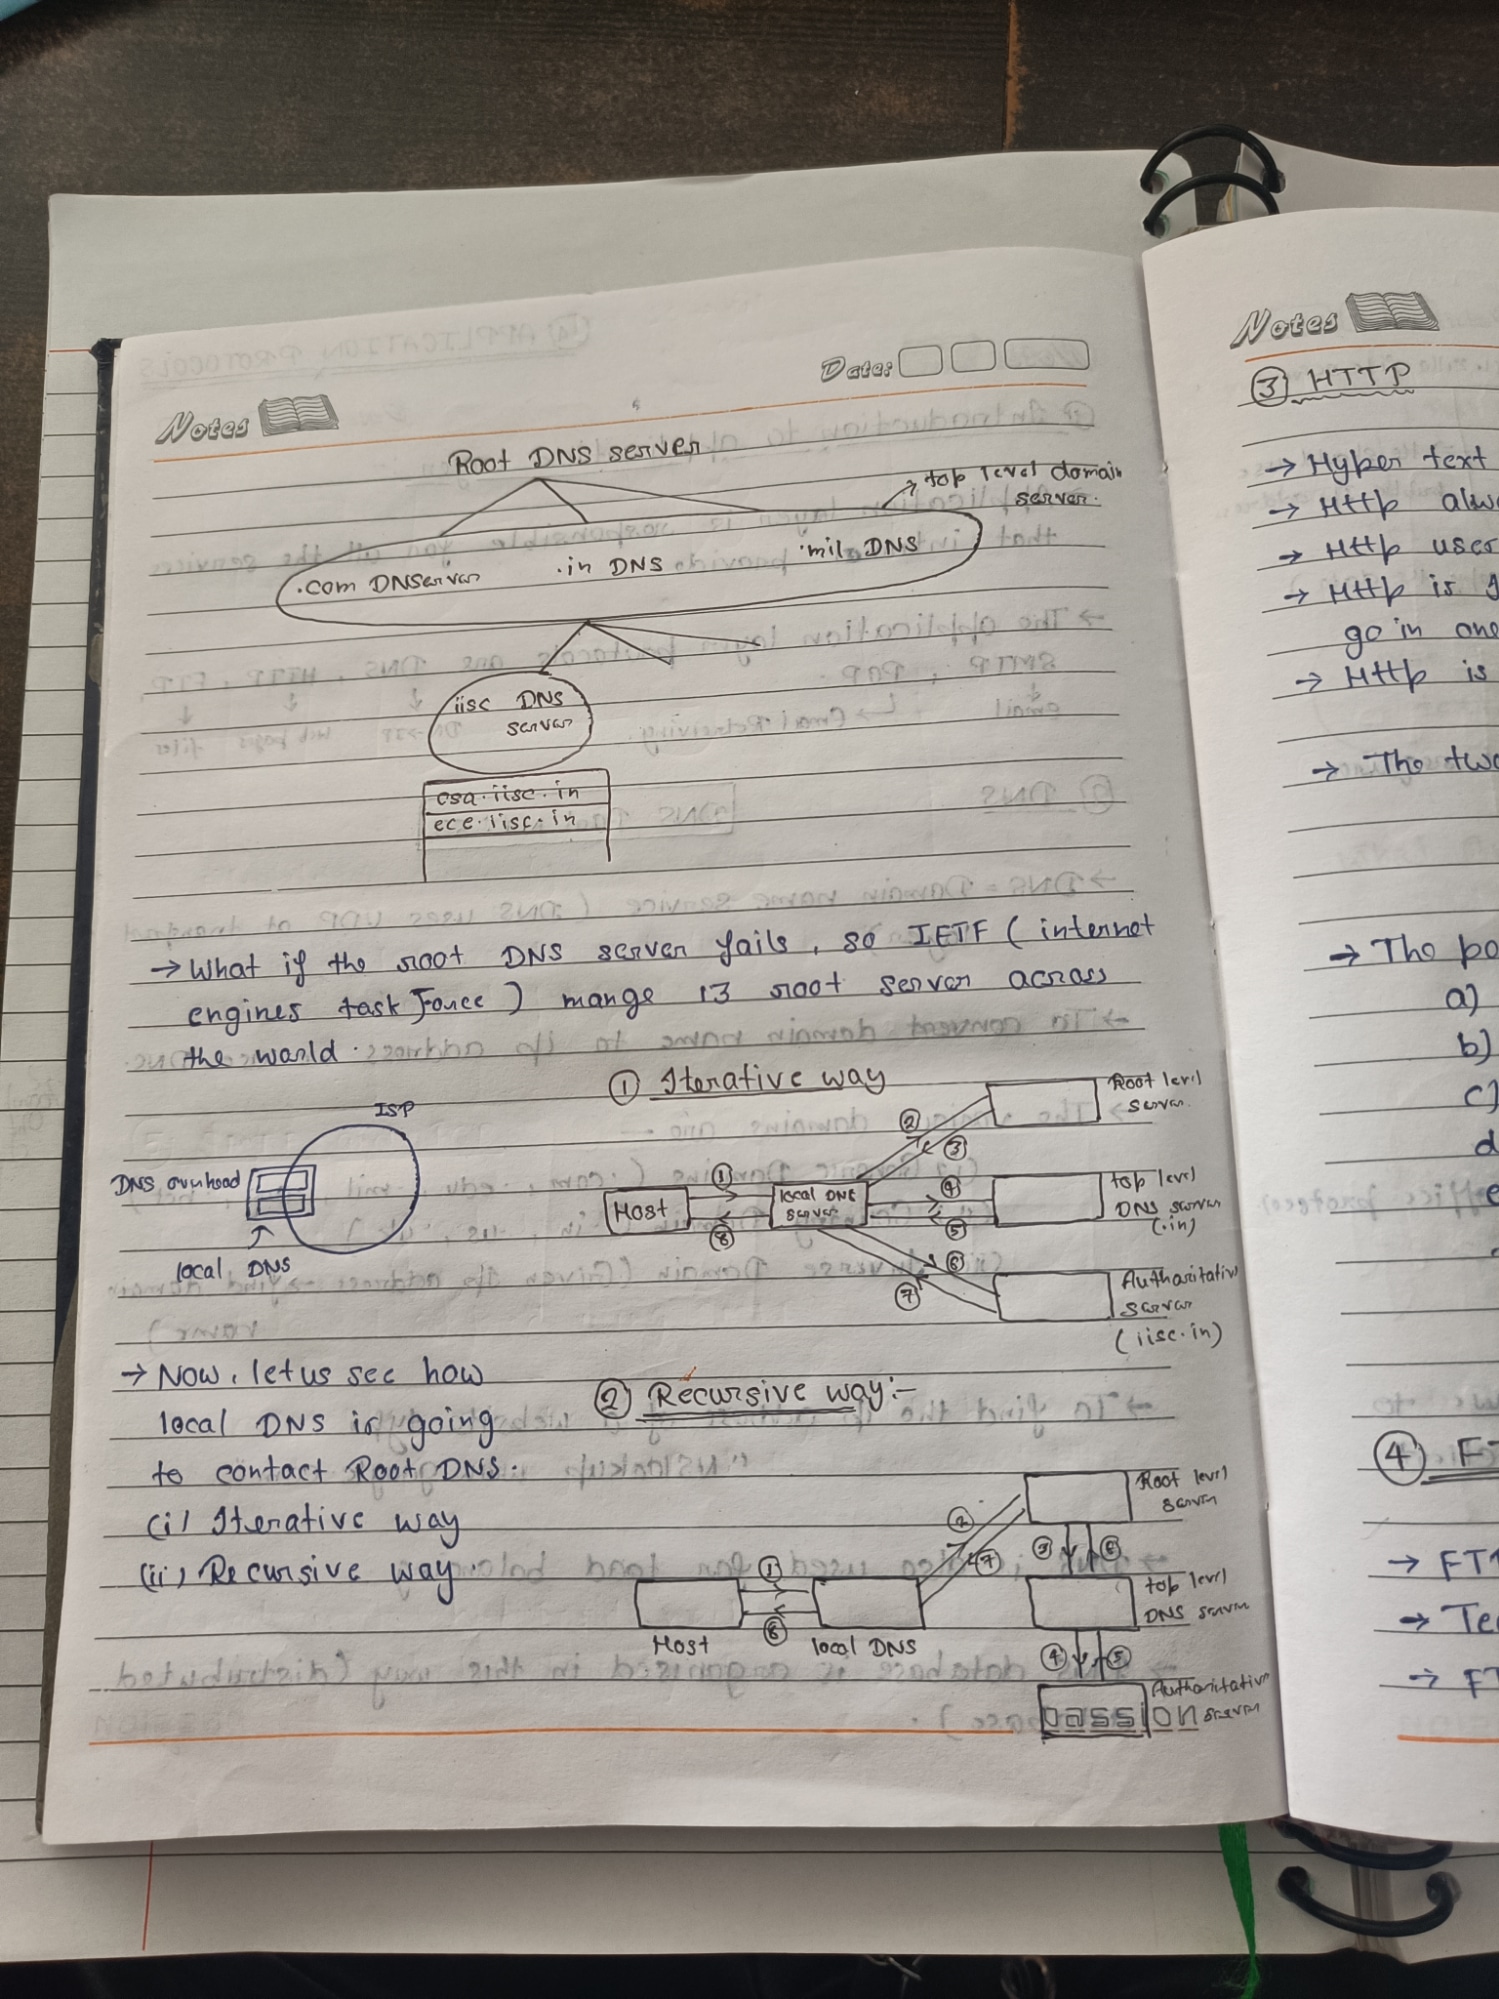 Notes
Date:
Root DNS server
top level domain
server.
.com DNServer .in DNS .mil DNS
iisc DNS
server
csa.iisc.in
ece.iisc.in
→ What if the root DNS server fails, so IETF ( internet
engines task Force ) mange 13 root server across
the world.
① Iterative way
ISP
DNS overhead
local DNS
Host
local DNS
server
Root level
server.
top level
DNS server
(.in)
Authoritative
server
(iisc.in)
① ② ③ ④ ⑤ ⑥ ⑦ ⑧
→ Now, let us see how
local DNS is going
to contact Root DNS.
(i) Iterative way
(ii) Recursive way.
② Recursive way:-
Host
local DNS
Root level
server
top level
DNS server
Authoritative
server
① ② ③ ④ ⑤ ⑥ ⑦ ⑧
passion
Notes
③ HTTP
→ Hyper text
→ Http
→ Http user
→ Http is
go in one
→ Http is
→ The two
→ The
a)
b)
c)
d
e
④
→
→
→